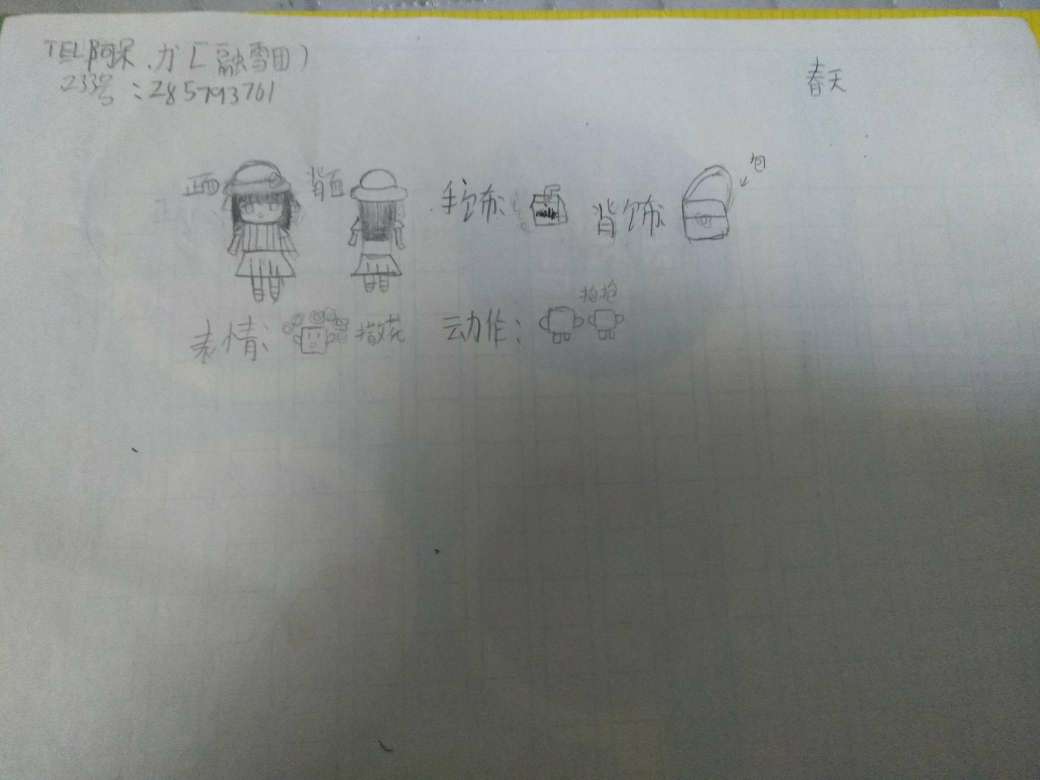 TEL阿呆.力[融雪田)
233号:285793761
春天
正面
背面
手饰:
milk
背饰:
包
表情:
撒花
动作:
拍拍